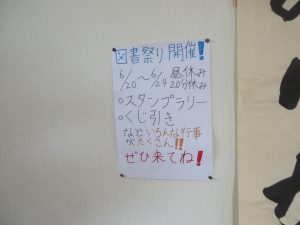 図書祭り開催!
6/20~6/24 昼休み
20分休み
○スタンプラリー
○くじ引き
などいろんな行事
がたくさん!!
ぜひ来てね!